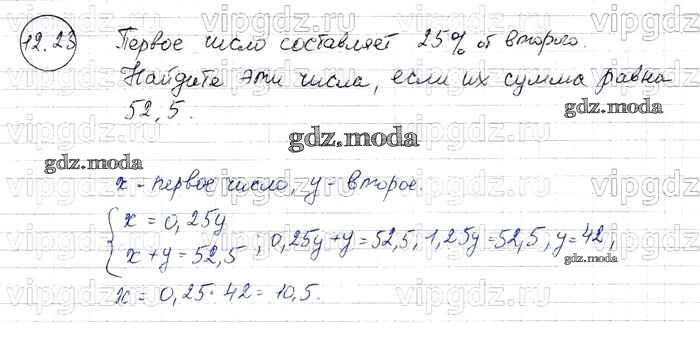 12.23 Первое число составляет 25% от второго.
Найдите эти числа, если их сумма равна
52,5.
gdz.moda
gdz.moda
gdz.moda
x - первое число, y - второе.
{ x = 0,25y
x + y = 52,5 ; 0,25y + y = 52,5; 1,25y = 52,5; y = 42;
gdz.moda
x = 0,25 · 42 = 10,5.
vipgdz.ru